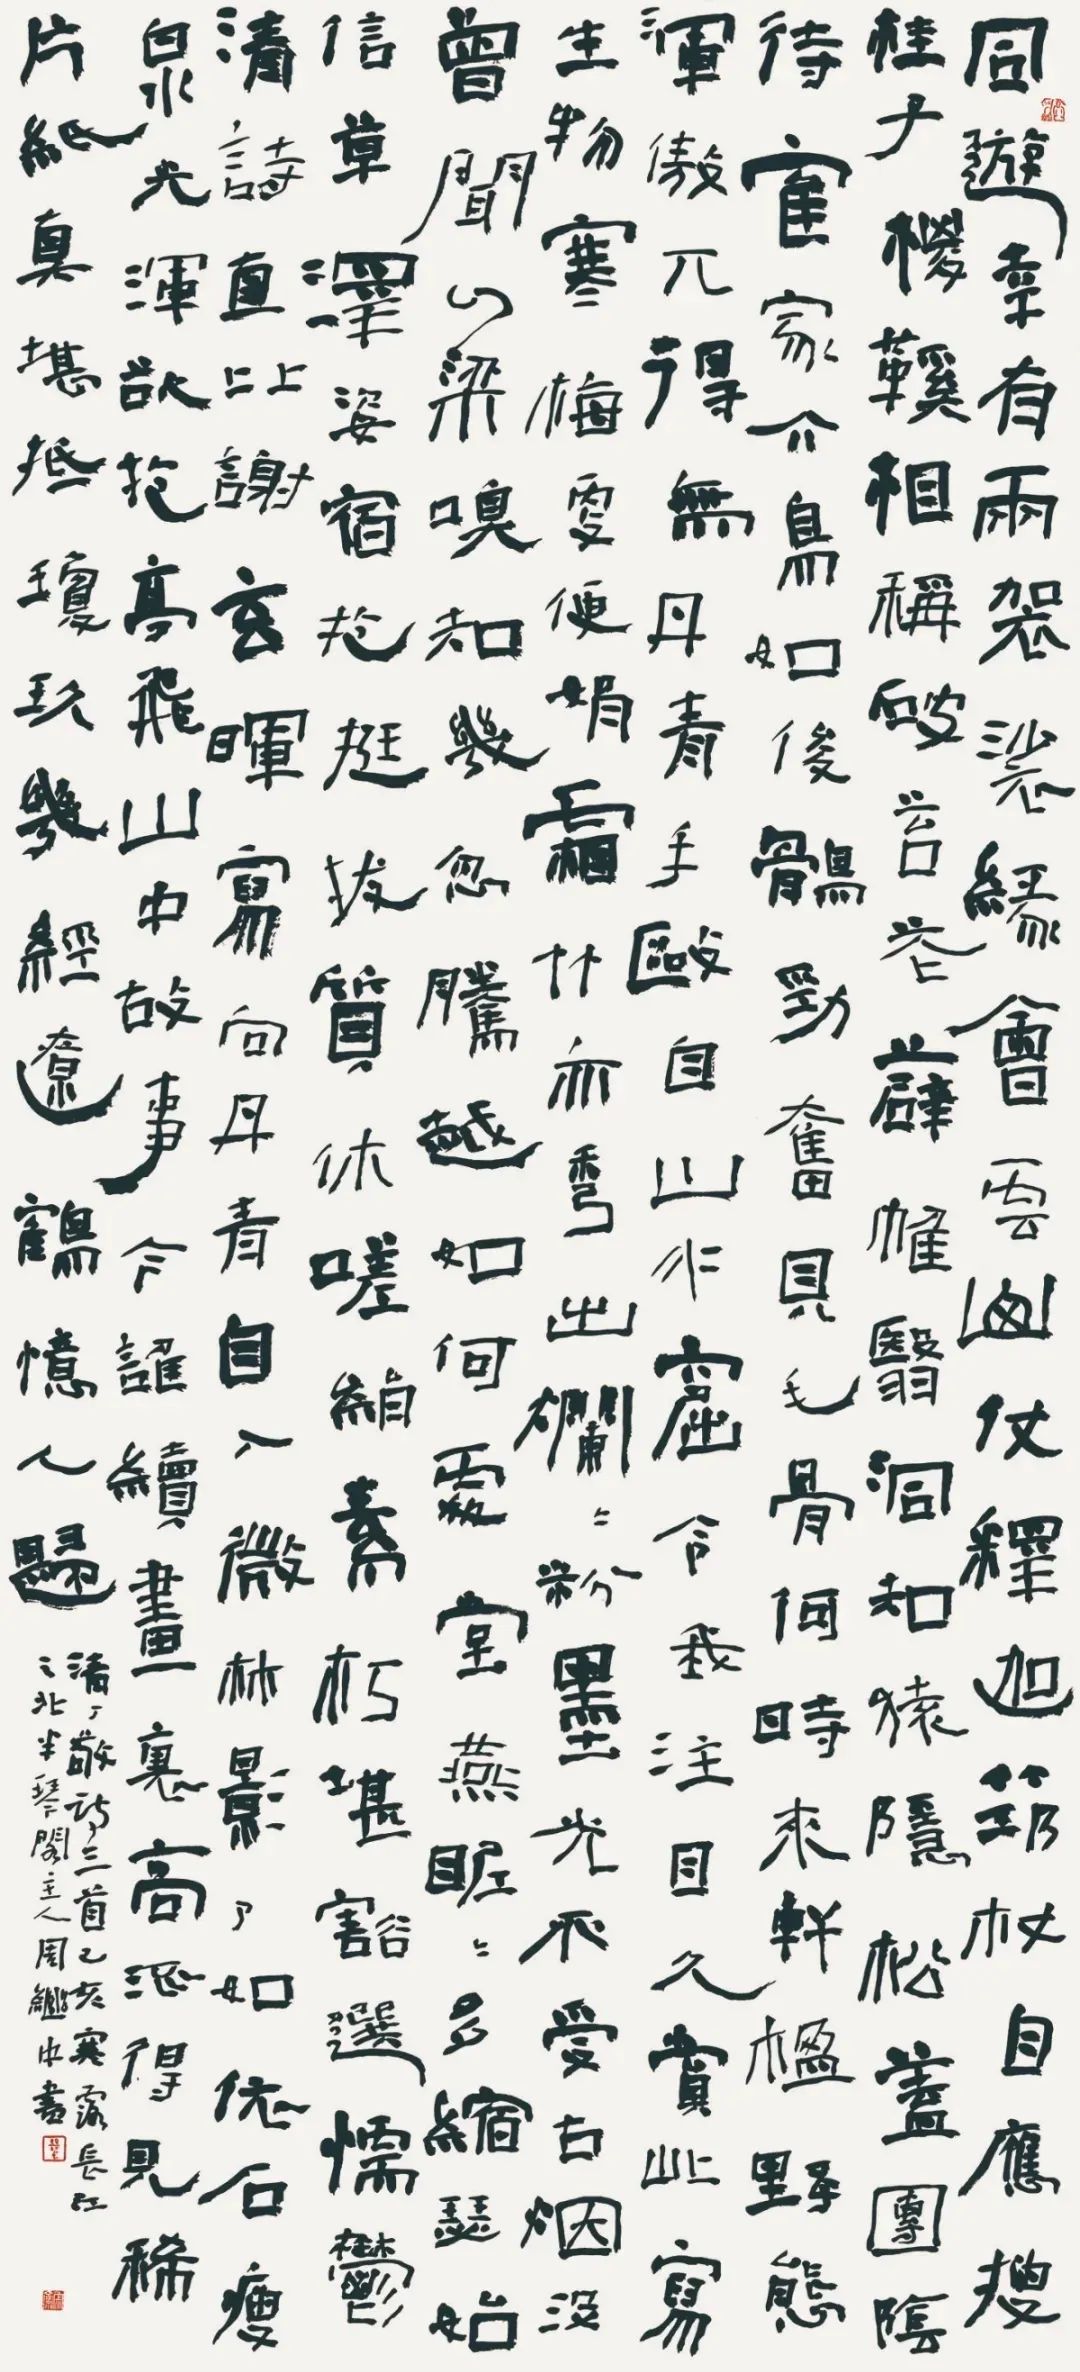 同遊幸有兩袈裟緣會雲幽仗釋迦筇杖自應搜
桂子椶鞵相稱破苔花薜帷翳洞知猿隱松蓋團陰
待隺家介鳥如後鶻勁奮見毛骨何時來軒檻野態
渾傲兀得無丹青手毆自山水窟令我注目久賞此寫
生物寒梅便娟霜竹亦彎出爛〻粉墨光不受古烟没
曾聞山梁嗅知幾忽騰越如何處堂燕眤〻多縮瑟始
信草澤姿宿抱挺拔質休嗟絹素朽堪豁選懦鬱
清詩直比謝玄暉寫向丹青自入微林影了如依石瘦
泉光渾欲抱亭飛山中故事今誰續畫裏高流得見稀
片紙真堪抵瓊玖幾經遼鶴憶人歸
清丁敬詩三首己亥寒露長江
之北半琴閣主人周繼中書